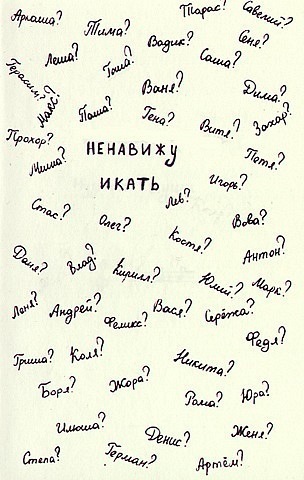 Тарас?
Савелий?
Аркаша?
Тима?
Вадик?
Сеня?
Лёша?
Тоша?
Саша?
Герасим?
Макс?
Ваня?
Дима?
Паша?
Гена?
Витя?
Захар?
Прохор?
Миша?
НЕНАВИЖУ
ИКАТЬ
Петя?
Игорь?
Лев?
Стас?
Олег?
Костя?
Вова?
Антон?
Даня?
Влад?
Кирилл?
Юлий?
Марк?
Лёня?
Андрей?
Феликс?
Вася?
Серёжа?
Федя?
Гриша?
Коля?
Никита?
Боря?
Жора?
Рома?
Юра?
Илюша?
Денис?
Женя?
Стёпа?
Герман?
Артём?